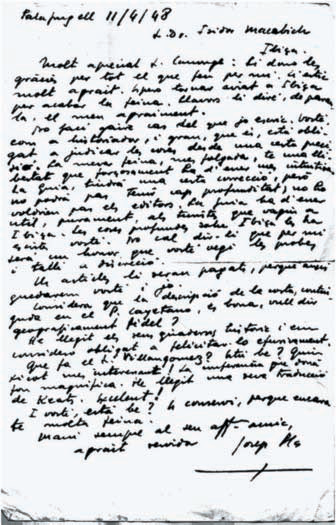 Palafrugell 11/4/48
A Do. Isidor Macabich
Ibiza.
Molt apreciat A. Canonge: Li dono les
gràcies per tot el que feu per mi. Li estic
molt aprait. Espero tornar aviat a Ibiza
per acabar la feina. Llavors li diré, de parau
la, el meu apraiment.
No faci gaire cas del que jo escric. Vosté
com a historiador, i gran, que és, està obli
gat a judicar les coses desde una certa preci
dicó. La meva feina, mes folgada, te una lli
bertat que forçosament ha d'aver mes inèrtica
La guia, tindrà una certa correció, però
no podrà pas tenir cap profunditat; no ho
voldrien pas els editors. La guia ha d'esser
util, purament, als turistes que vagin a
Ibiza. Les coses profundes sobre Ibiza les ha
escrites vosté. No cal dir-li que per mi
serà un honor que vosté vegi les probes
i talli a discreció.
Els articles li seran pagats, perque aixís
quedarem vosté i jo.
Considera que la descripció de la costa, contin
guda en el P. Cayetano, es bona, vull dir
geograficament fidel?
He llegit els seus quaderns historics i em
considero obligat a felicitar-lo efusivament.
Que fa el Sr. Villangomez? Està be? Quin
xicot mes interessant! La conferencia que donà
fou magnifica. He llegit una seva traducció
de Keats. Excelent!
I vosté, està be? Es conservi, perque encara
te molta feina.
Mani sempre al seu aff. amic,
aprait servidor
Josep Pla